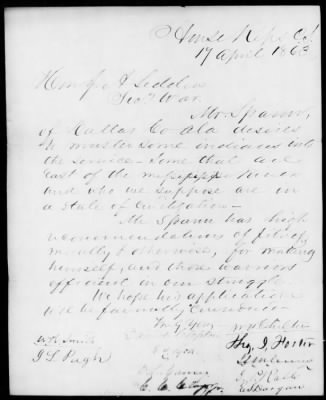 House Reps C.S.
17 April 1863
Hon Jas A Seddon
Secy War
Mr. Spann,
of Dallas Co Ala desires
to muster some indians into
the service - Some that are
East of the Mississippi River
and who we suppose are in
a State of Civilization -
Mr Spann has high
recommendations of fitness,
morally & otherwise, for making
himself, and those warriors
efficient in our struggle.
We hope his application
will be favorably considered
W. R. Smith
J L Pugh
Thos. J. Foster